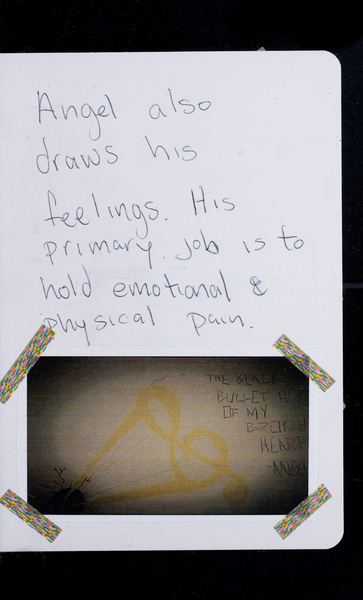 Angel also
draws his
feelings. His
primary job is to
hold emotional &
physical pain.
THE BLACK
BULLET
OF MY
BROKEN
HEART
-ANGEL